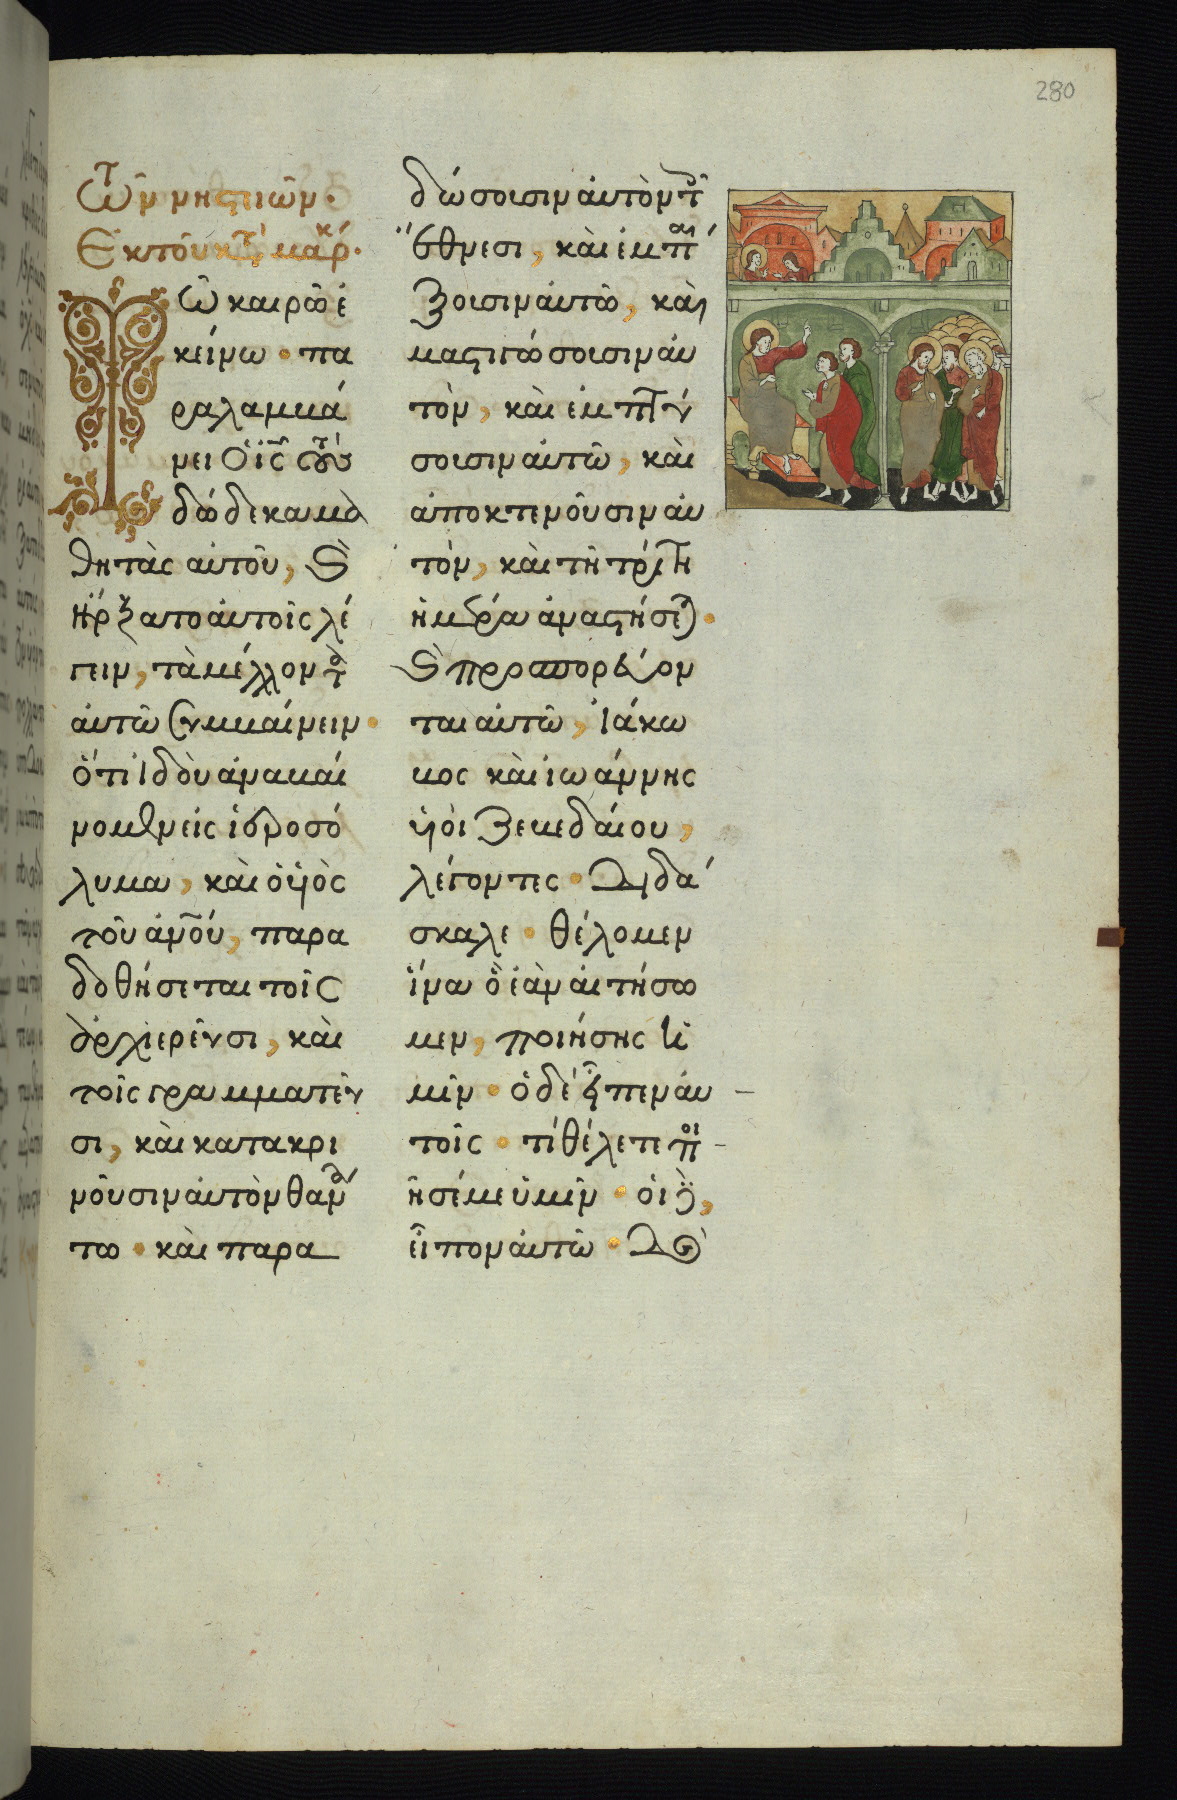 280
τῶν νηστιῶν·
Ἐκ τοῦ κτ μαρκ·
Τῶ καιρῶ ἐ
κείνω· πα
ραλαμβά
νει ὁ ἰς τοὺς
δώδεκα μα
θητὰς αὐτοῦ, καὶ
ἤρξατο αὐτοῖς λέ
γειν, τὰ μέλλοντ
αὐτῶ συμβαίνειν·
ὅτι ἰδοὺ ἀναβαί
νομεν εἰς ἱεροσό
λυμα, καὶ ὁ υἱὸς
τοῦ ἀνου, παρα
δοθήσεται τοῖς
ἀρχιερεῦσι, καὶ
τοῖς γραμματεῦ
σι, καὶ κατακρι
νοῦσιν αὐτὸν θανά
τω· καὶ παρα
δώσουσιν αὐτὸν τοῖς
ἔθνεσι, καὶ ἐμπαί
ξουσιν αὐτῶ, καὶ
μαστιγώσουσιν αὐ
τὸν, καὶ ἐμπτύ
σουσιν αὐτῶ, καὶ
ἀποκτενοῦσιν αὐ
τόν, καὶ τῆ τρίτη
ἡμέρα ἀναστήσεται·
καὶ προσπορεύον
ται αὐτῶ, Ἰάκω
βος καὶ ἰωάννης
υἱοὶ Ζεβεδαίου,
λέγοντες· Διδά
σκαλε· θέλομεν
ἵνα ὃ ἐὰν αἰτήσω
μεν, ποιήσης ἡ
μῖν· ὁ δέ εἶπεν αὐ
τοῖς· τί θέλετε ποι
ῆσαί με ὑμῖν· οἱ δὲ,
εἶπον αὐτῶ· Δὸς